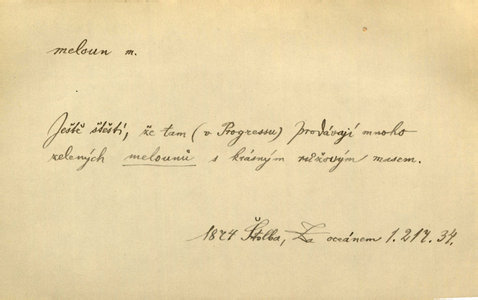 meloun m.
Ještě štěstí, že tam (v Progressu) prodávají mnoho
zelených melounů s krásným růžovým masem.
1874 Štolba, Za oceánem 1. 217. 34.